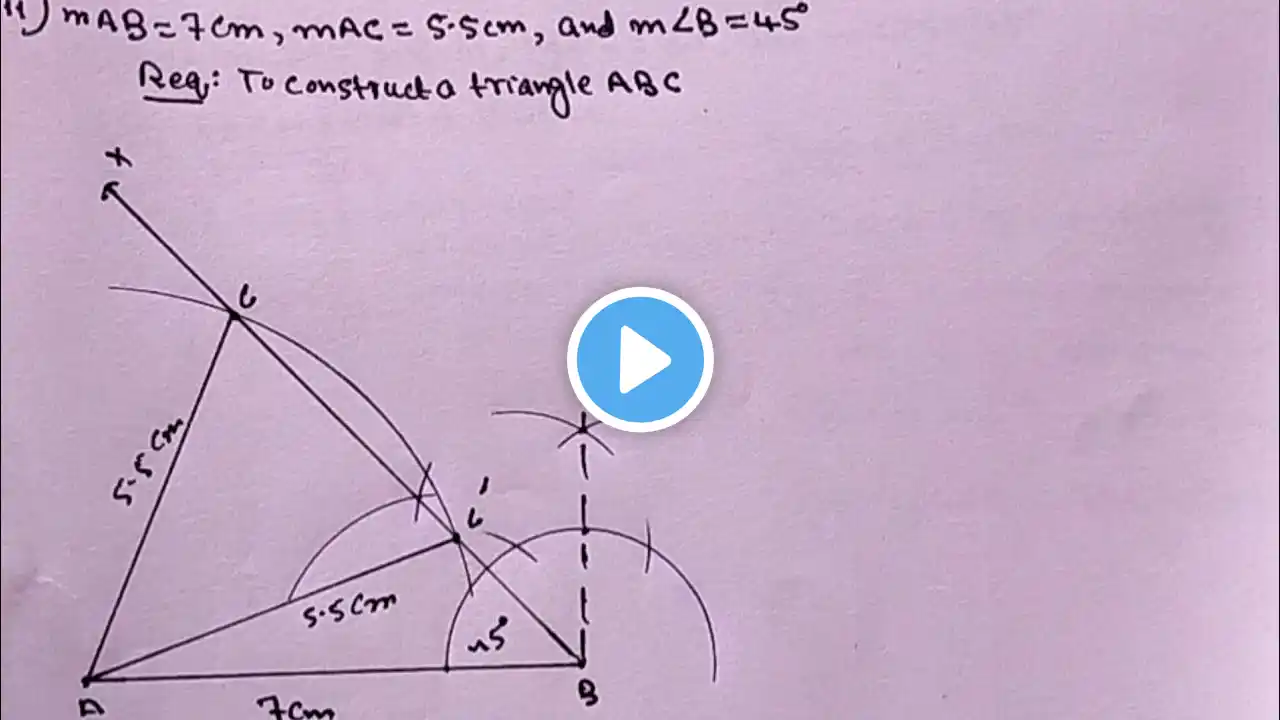 11) mAB=7cm, mAC=5.5cm, and m∠B=45°
Req: To construct a triangle ABC
X
C
5.5cm
C'
5.5cm
45°
A
7cm
B